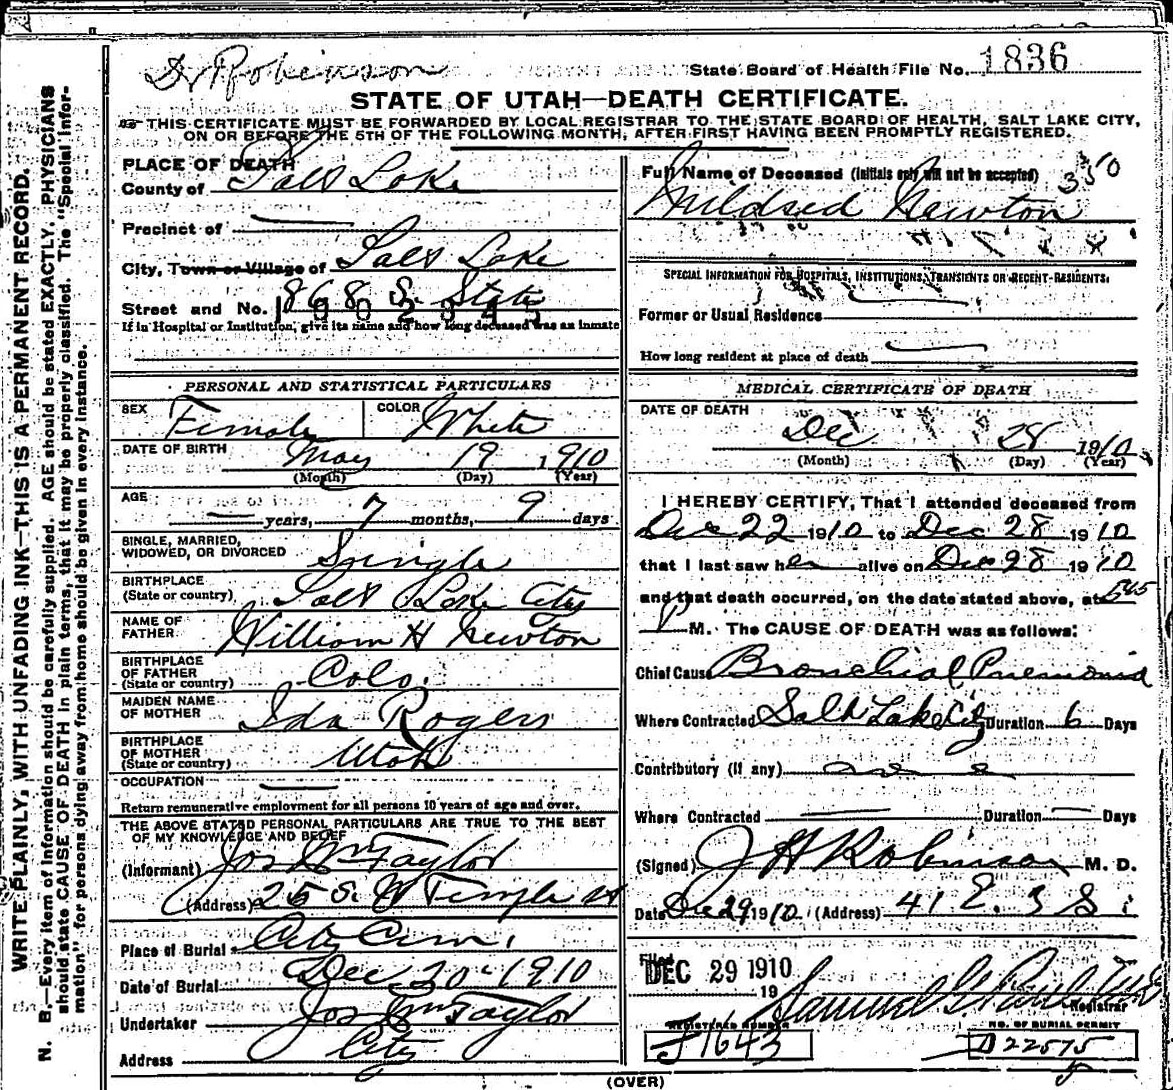 Dr Robinson
State Board of Health File No. 1836
STATE OF UTAH—DEATH CERTIFICATE.
THIS CERTIFICATE MUST BE FORWARDED BY LOCAL REGISTRAR TO THE STATE BOARD OF HEALTH, SALT LAKE CITY,
ON OR BEFORE THE 5TH OF THE FOLLOWING MONTH, AFTER FIRST HAVING BEEN PROMPTLY REGISTERED.
WRITE PLAINLY, WITH UNFADING INK—THIS IS A PERMANENT RECORD.
N. B.—Every item of information should be carefully supplied. AGE should be stated EXACTLY. PHYSICIANS
should state CAUSE OF DEATH in plain terms, that it may be properly classified. The "Special Infor-
mation" for persons dying away from home should be given in every instance.
PLACE OF DEATH
County of Salt Lake
Precinct of —
City, Town or Village of Salt Lake
Street and No. 868 S. State
1902945
If in Hospital or Institution, give its name and how long deceased was an inmate
PERSONAL AND STATISTICAL PARTICULARS
SEX Female COLOR White
DATE OF BIRTH May 19 1910
(Month) (Day) (Year)
AGE
— years, 7 months, 9 days
SINGLE, MARRIED,
WIDOWED, OR DIVORCED Single
BIRTHPLACE
(State or country) Salt Lake City
NAME OF
FATHER William H Newton
BIRTHPLACE
OF FATHER
(State or country) Colo.
MAIDEN NAME
OF MOTHER Ida Rogers
BIRTHPLACE
OF MOTHER
(State or country) Utah
OCCUPATION —
Return remunerative employment for all persons 10 years of age and over.
THE ABOVE STATED PERSONAL PARTICULARS ARE TRUE TO THE BEST
OF MY KNOWLEDGE AND BELIEF
(Informant) Jos Wm Taylor
(Address) 25 S. W Temple St
Place of Burial City Cem.
Date of Burial Dec 30 - 1910
Undertaker Jos Wm Taylor
Address City
Full Name of Deceased (Initials only will not be accepted) 350
Mildred Newton
SPECIAL INFORMATION FOR HOSPITALS, INSTITUTIONS, TRANSIENTS OR RECENT RESIDENTS.
Former or Usual Residence —
How long resident at place of death —
MEDICAL CERTIFICATE OF DEATH
DATE OF DEATH
Dec 28 1910
(Month) (Day) (Year)
I HEREBY CERTIFY, That I attended deceased from
Dec 22 1910 to Dec 28 1910
that I last saw her alive on Dec 28 1910
and that death occurred, on the date stated above, at 5 45
P M. The CAUSE OF DEATH was as follows:
Chief Cause Bronchial Pnemonia
Where Contracted Salt Lake City Duration 6 Days
Contributory (if any)
Where Contracted — Duration — Days
(Signed) J H Robinson M. D.
Date Dec 29 1910 (Address) 41 E. 3 S.
Filed
DEC 29 1910
19
Samuel G. Paul
Registrar
REGISTERED NUMBER
J1643
NO. OF BURIAL PERMIT
D22575
(OVER)